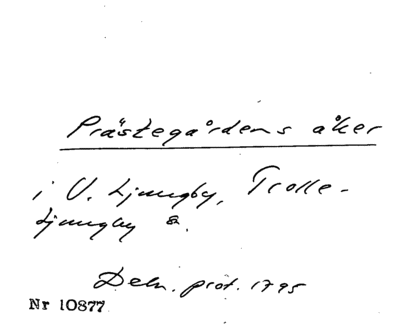 Prästegårdens åker
i V. Ljungby, Trolle-
Ljungby s.
Deln. prot. 1795
Nr 10877